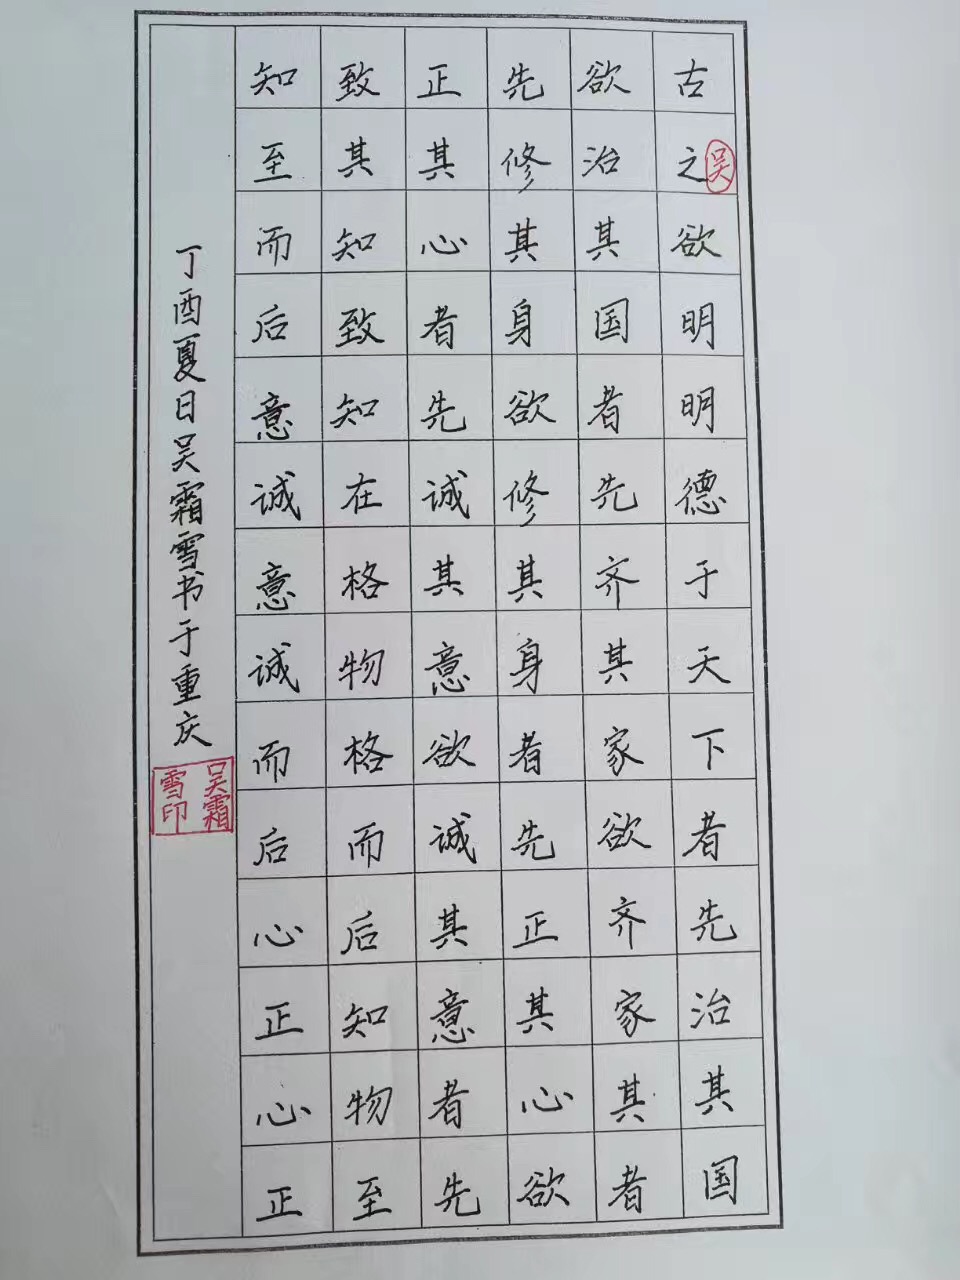 古之欲明明德于天下者先治其国
吴
欲治其国者先齐其家欲齐家其者
先修其身欲修其身者先正其心欲
正其心者先诚其意欲诚其意者先
致其知致知在格物格而后知物至
知至而后意诚意诚而后心正心正
丁酉夏日吴霜雪书于重庆
吴霜
雪印